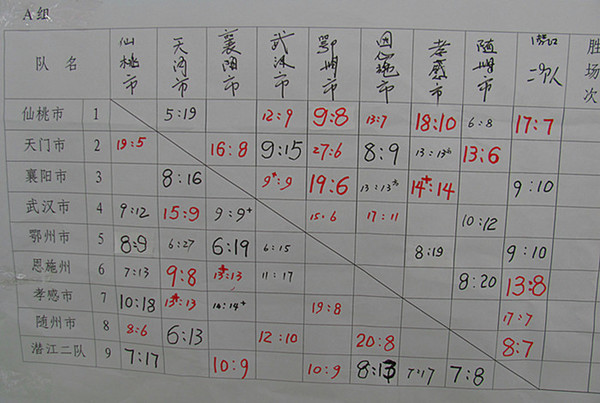 A组
队 名 仙桃市 天门市 襄阳市 武汉市 鄂州市 恩施州 孝感市 随州市 二队 胜场次
仙桃市 1 5:19 12:9 9:8 13:7 18:10 6:8 17:7
天门市 2 19:5 16:8 9:15 27:6 8:9 13:13 13:6
襄阳市 3 8:16 9+:9 19:6 13:13 14+:14 9:10
武汉市 4 9:12 15:9 9:9+ 15:6 17:11 10:12
鄂州市 5 8:9 6:27 6:19 6:15 8:19 9:10
恩施州 6 7:13 9:8 13+:13 11:17 8:20 13:8
孝感市 7 10:18 13+:13 14:14+ 19:8 17:7
随州市 8 8:6 6:13 12:10 20:8 8:7
潜江二队 9 7:17 10:9 10:9 8:13 7:17 7:8